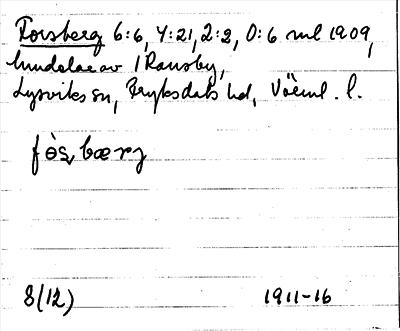 Forsberg 6:6, 4:21, 2:2, 0:6 ml 1909,
hundelae av 1 Ransby,
Lysviks sn, Fryksdals hd, Värml. l.
fòs, bærj
8(12) 1911-16